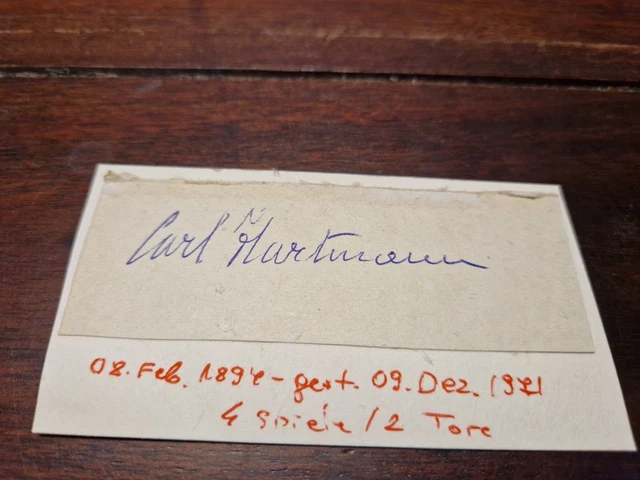 Carl Hartmann
08. Feb. 1894 - gest. 09. Dez. 1971
4 Spiele / 2 Tore